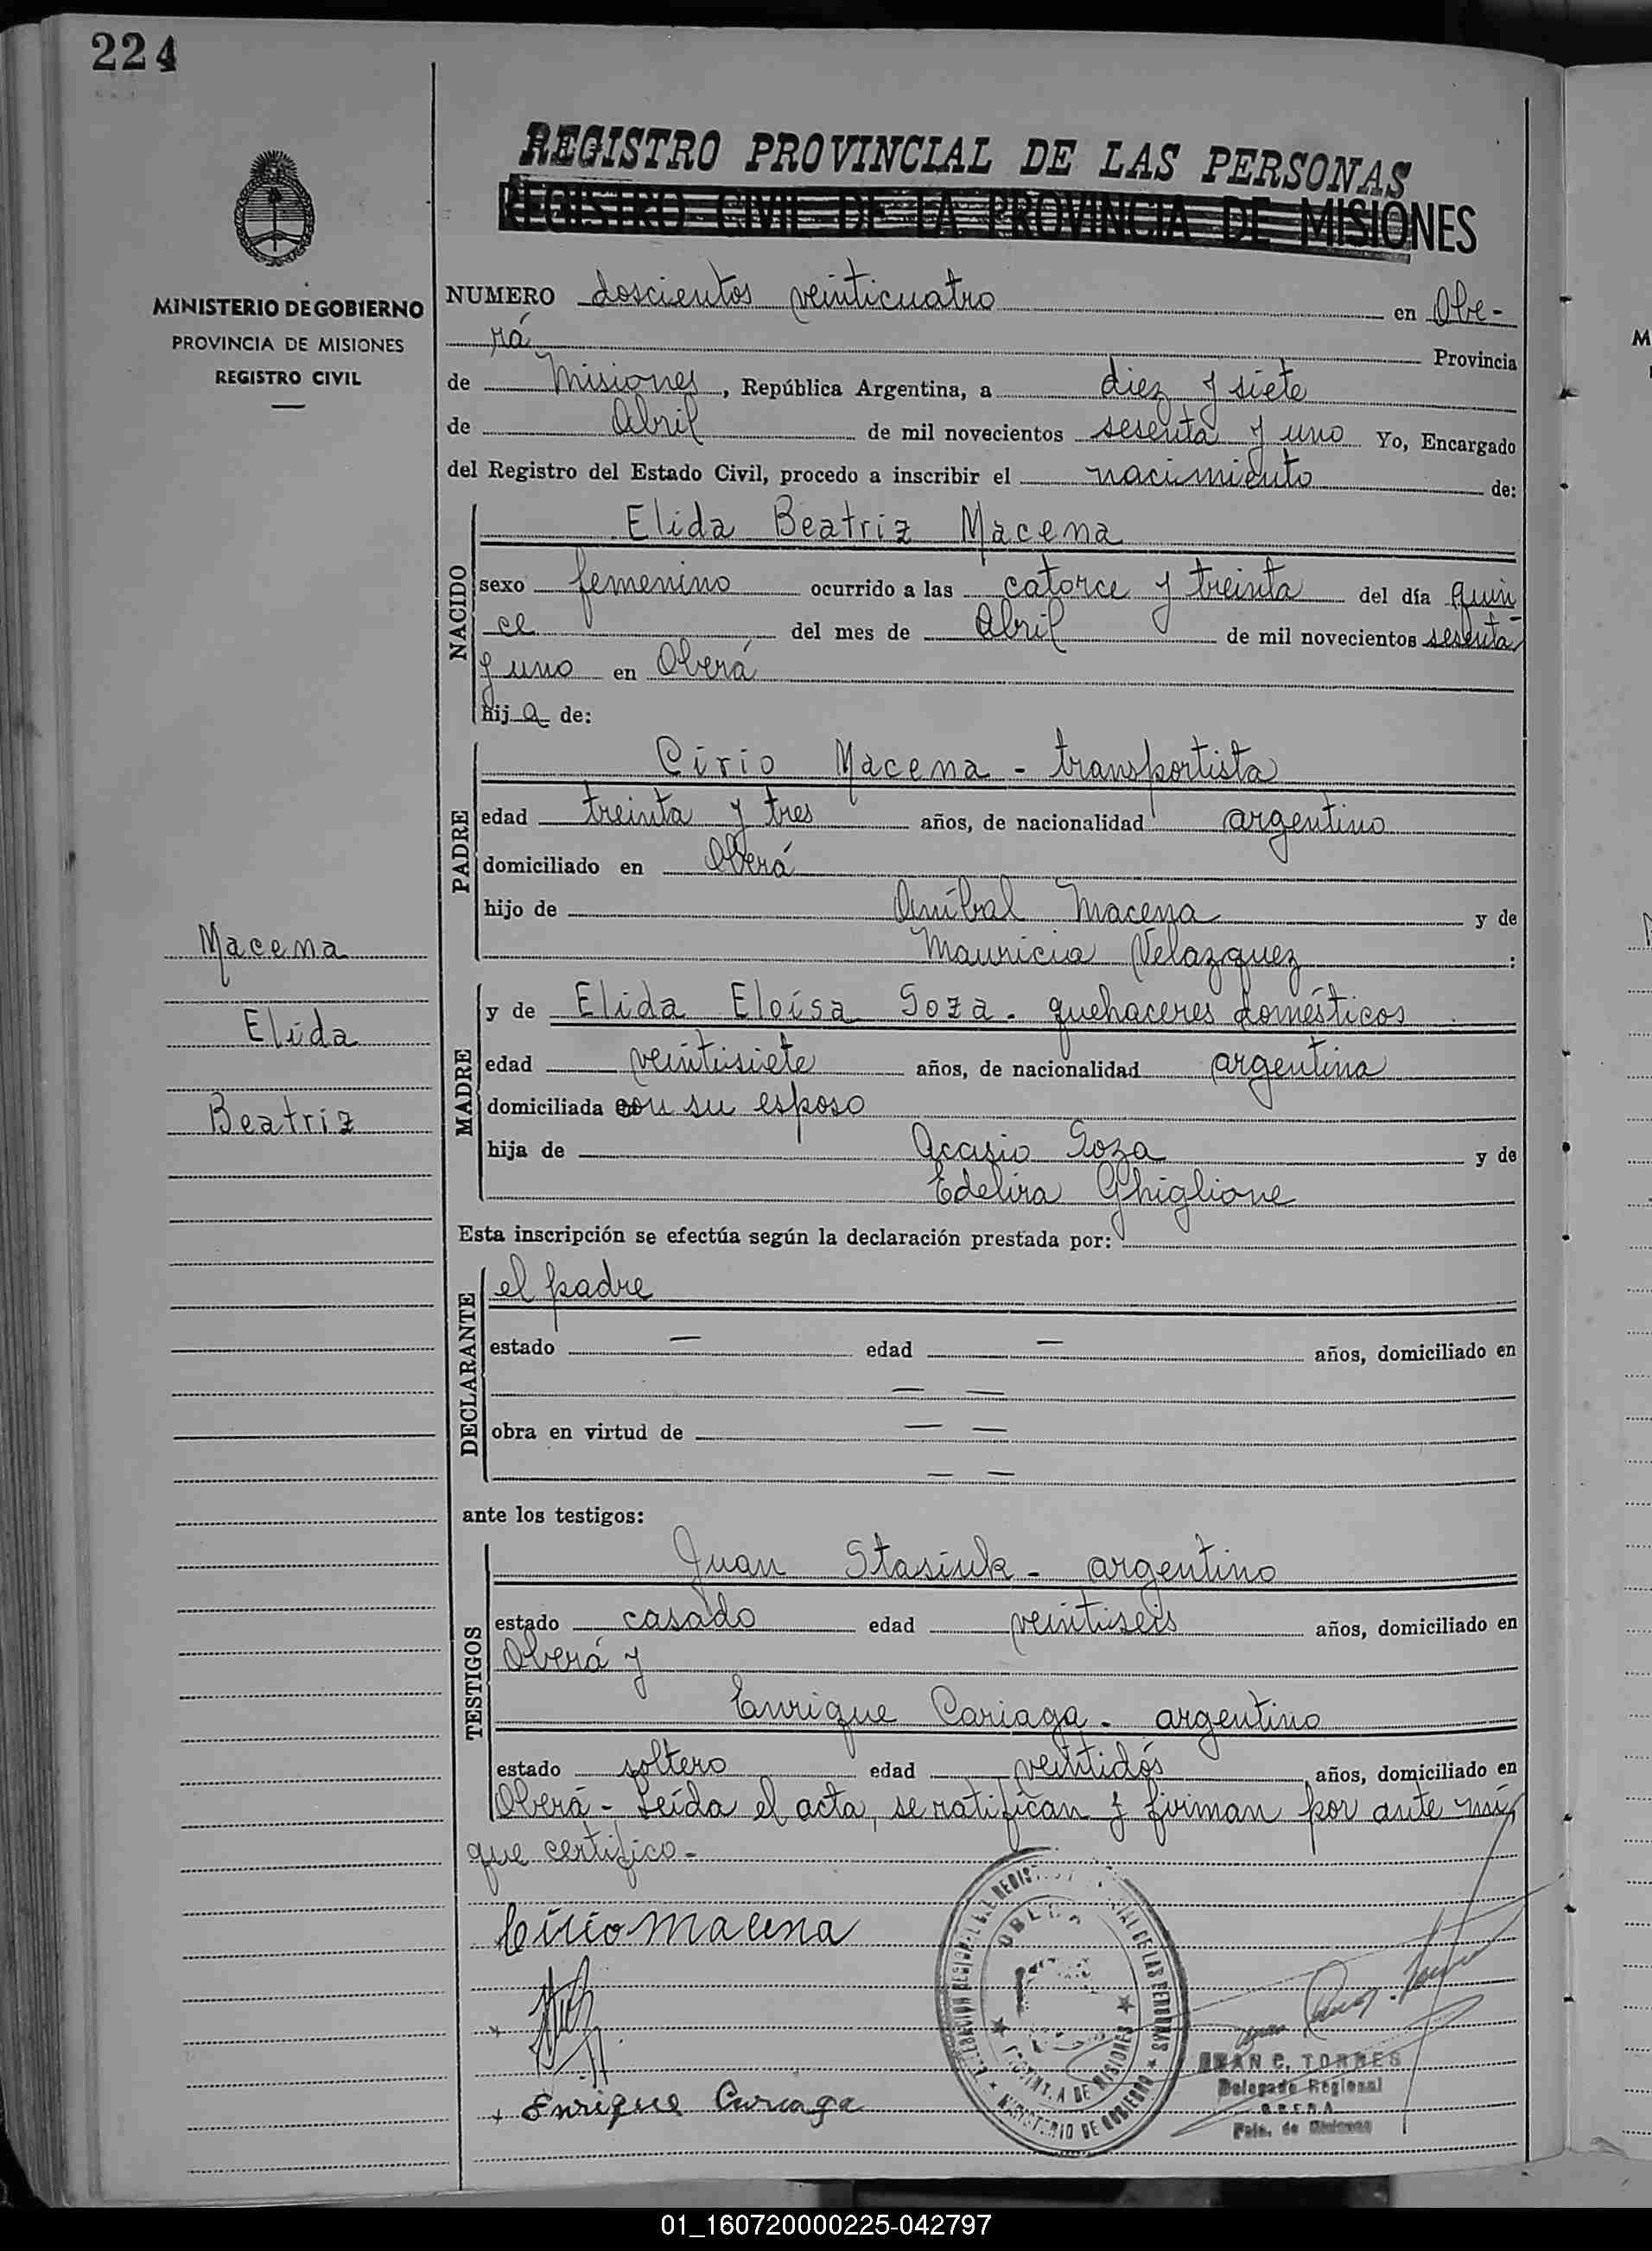 224
REGISTRO PROVINCIAL DE LAS PERSONAS
REGISTRO CIVIL DE LA PROVINCIA DE MISIONES
MINISTERIO DE GOBIERNO
PROVINCIA DE MISIONES
REGISTRO CIVIL
NUMERO doscientos veinticuatro en Obe-
rá Provincia
de Misiones, República Argentina, a diez y siete
de Abril de mil novecientos sesenta y uno Yo, Encargado
del Registro del Estado Civil, procedo a inscribir el nacimiento de:
NACIDO
Elida Beatriz Macena
sexo femenino ocurrido a las catorce y treinta del día quin-
ce del mes de Abril de mil novecientos sesenta
y uno en Oberá
hija de:
PADRE
Cirio Macena - transportista
edad treinta y tres años, de nacionalidad argentino
domiciliado en Oberá
hijo de Aníbal Macena y de
Mauricia Velazquez :
Macena
Elida
Beatriz
MADRE
y de Elida Eloísa Soza - quehaceres domésticos
edad veintisiete años, de nacionalidad argentina
domiciliada con su esposo
hija de Acasio Soza y de
Edelira Ghiglione
Esta inscripción se efectúa según la declaración prestada por:
DECLARANTE
el padre
estado — edad — años, domiciliado en
— —
obra en virtud de — —
— —
ante los testigos:
TESTIGOS
Juan Stasiuk - argentino
estado casado edad veintiseis años, domiciliado en
Oberá y
Enrique Cariaga - argentino
estado soltero edad veintidós años, domiciliado en
Oberá - Leída el acta, se ratifican y firman por ante mí,
que certifico -
Cirio Macena
Enrique Cariaga
MINISTERIO DE GOBIERNO
C. TORRES
Delegado Regional
OBERA
Pcia. de Misiones
01_160720000225-042797